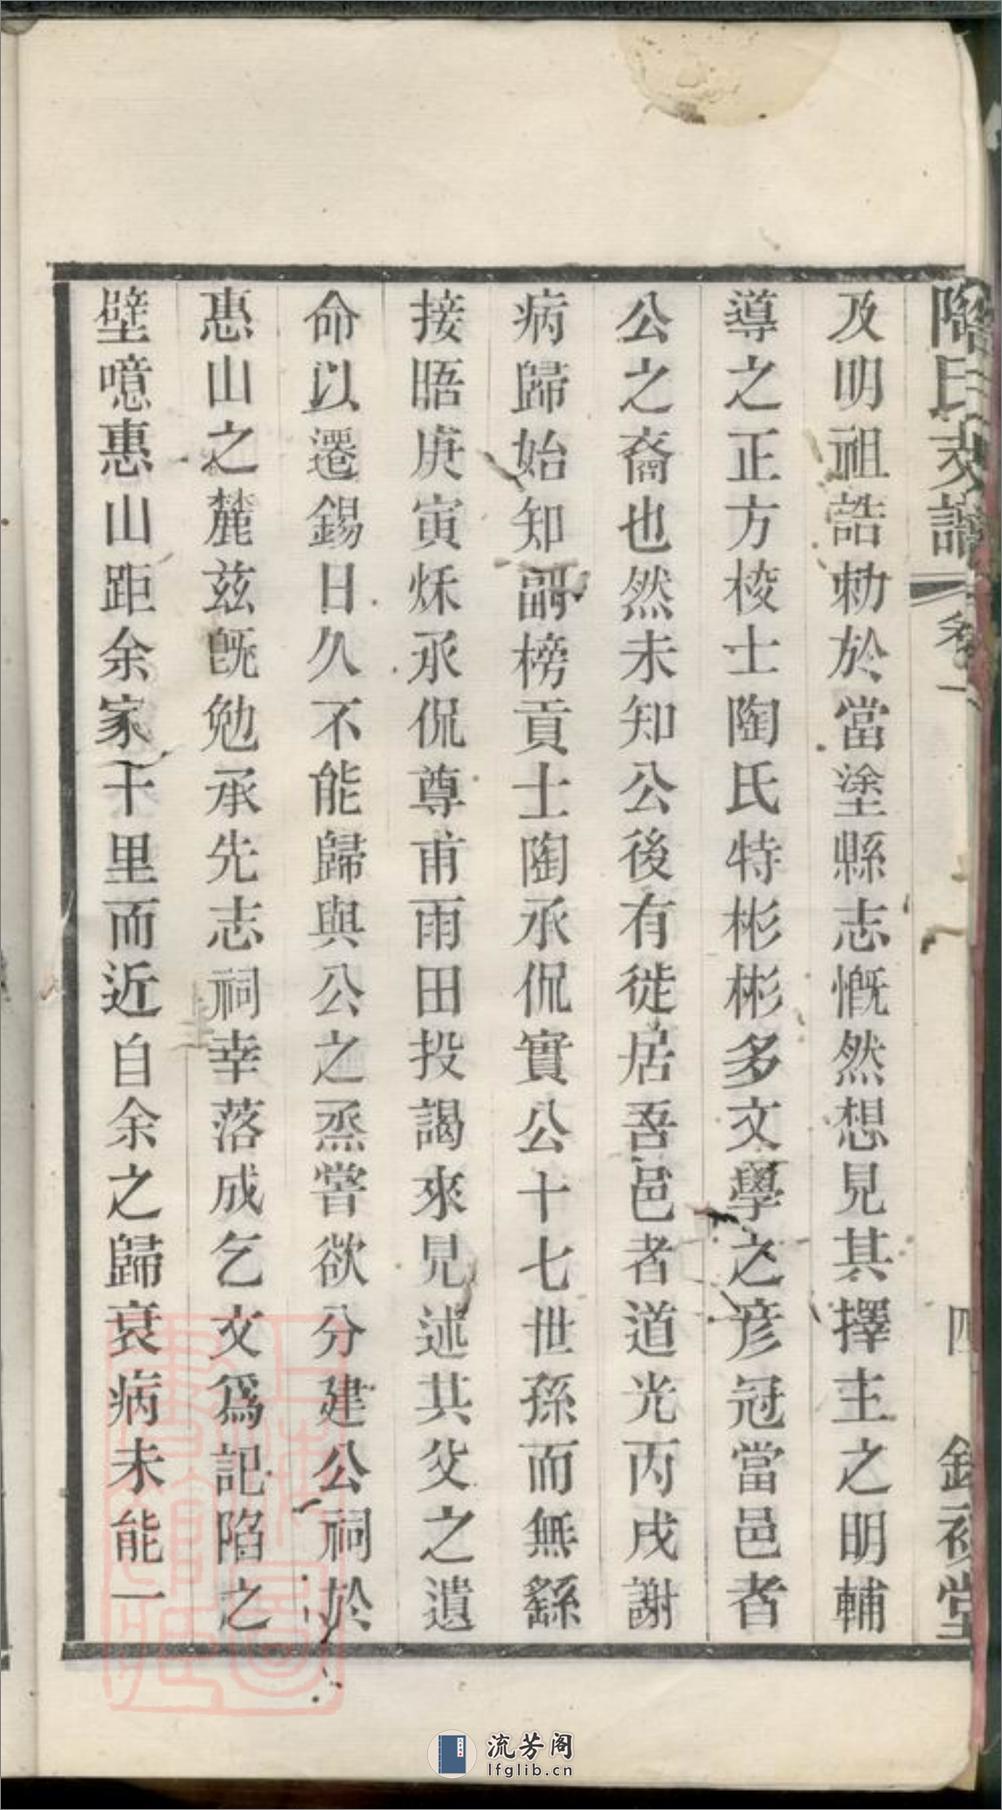 陶氏支譜
卷一
四
錦初堂
及明祖誥勅於當塗縣志慨然想見其擇主之明輔
導之正方棱士陶氏特彬彬多文學之彥冠當邑者
公之裔也然未知公後有徙居吾邑者道光丙戌謝
病歸始知副榜貢士陶承侃實公十七世孫而無繇
接晤庚寅秌承侃尊甫雨田投謁來見述其父之遺
命以遷錫日久不能歸與公之烝嘗欲分建公祠於
惠山之麓茲旣勉承先志祠幸落成乞文爲記陷之
壁噫惠山距余家十里而近自余之歸衰病未能一
流芳阁
lfglib.cn